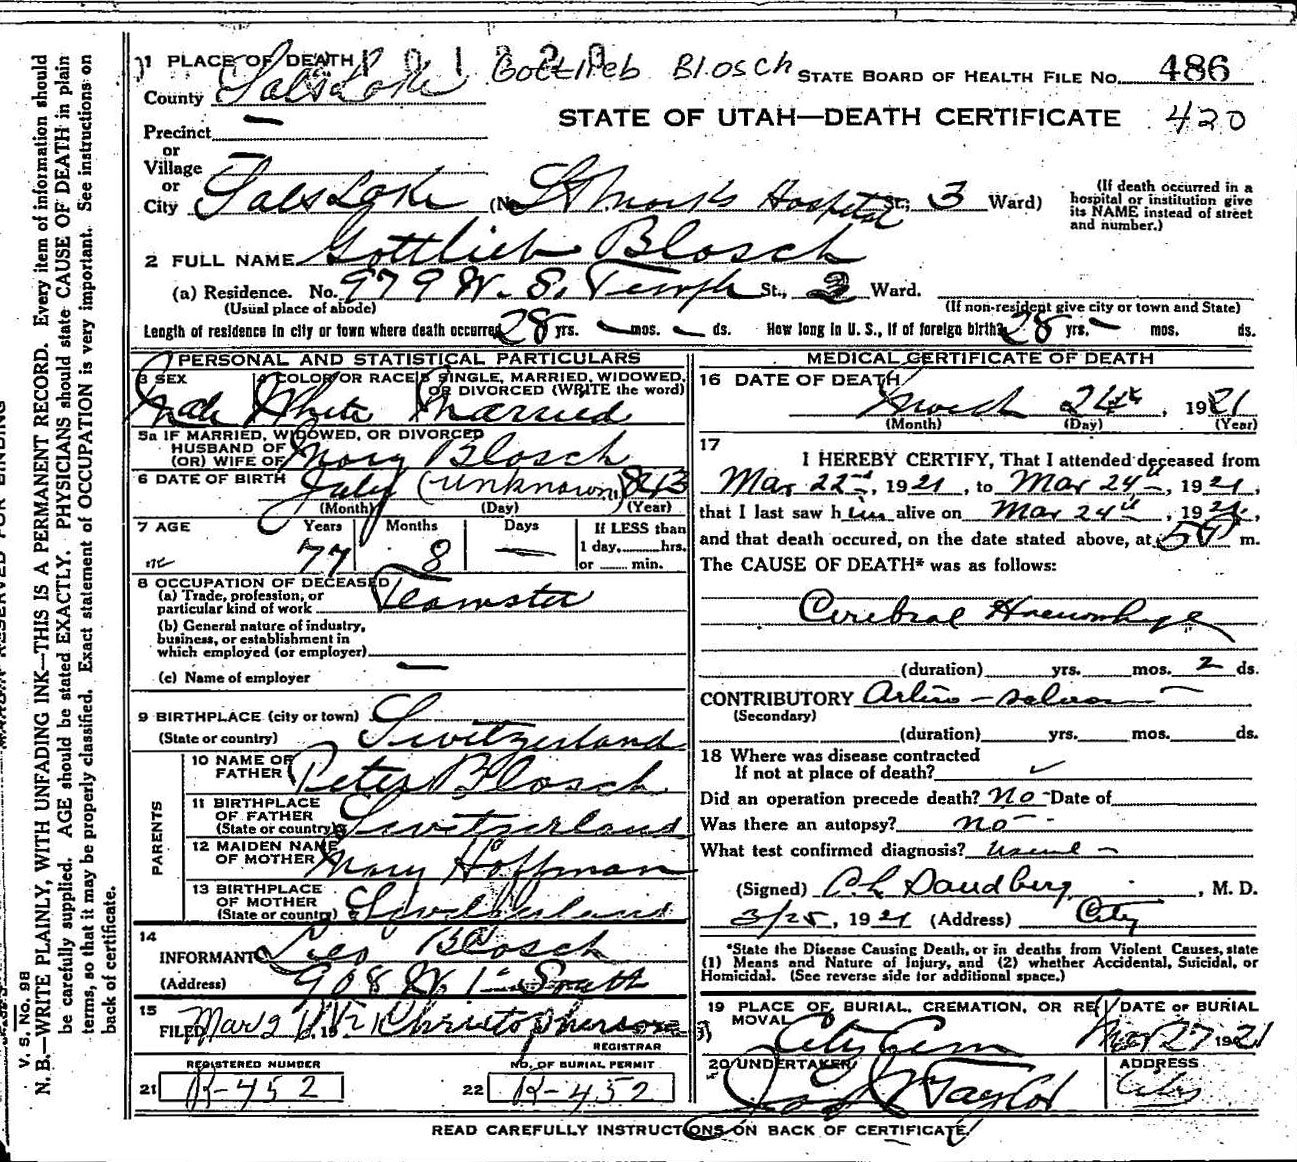 1 PLACE OF DEATH Gottlieb Blosch STATE BOARD OF HEALTH FILE No. 486
County Salt Lake
STATE OF UTAH—DEATH CERTIFICATE 420
Precinct —
or
Village —
or
City Salt Lake (No. St Mark's Hospital St; 3 Ward)
(If death occurred in a hospital or institution give its NAME instead of street and number.)
2 FULL NAME Gottlieb Blosch
(a) Residence. No. 979 W. S. Temple St., 2 Ward.
(Usual place of abode) (If non-resident give city or town and State)
Length of residence in city or town where death occurred 28 yrs. — mos. — ds. How long in U. S., if of foreign birth? 28 yrs. — mos. ds.
PERSONAL AND STATISTICAL PARTICULARS
3 SEX 4 COLOR OR RACE 5 SINGLE, MARRIED, WIDOWED,
OR DIVORCED (WRITE the word)
Male White Married
5a IF MARRIED, WIDOWED, OR DIVORCED
HUSBAND OF
(OR) WIFE OF Mary Blosch
6 DATE OF BIRTH July (unknown) 1843
(Month) (Day) (Year)
7 AGE Years Months Days If LESS than
1 day, hrs.
or min.
77 8 —
8 OCCUPATION OF DECEASED
(a) Trade, profession, or
particular kind of work Teamster
(b) General nature of industry,
business, or establishment in
which employed (or employer)
(c) Name of employer —
9 BIRTHPLACE (city or town)
(State or country) Switzerland
PARENTS
10 NAME OF
FATHER Peter Blosch
11 BIRTHPLACE
OF FATHER
(State or country) Switzerland
12 MAIDEN NAME
OF MOTHER Mary Hoffman
13 BIRTHPLACE
OF MOTHER
(State or country) Switzerland
14
INFORMANT Leo Blosch
(Address) 908 W. 1st South
15
FILED Mar 2 19 21 Christopherson
REGISTRAR
REGISTERED NUMBER NO. OF BURIAL PERMIT
21 K-452 22 K-452
MEDICAL CERTIFICATE OF DEATH
16 DATE OF DEATH
March 24th, 1921
(Month) (Day) (Year)
17
I HEREBY CERTIFY, That I attended deceased from
Mar 22nd, 1921, to Mar 24th, 1921,
that I last saw him alive on Mar 24th, 1921,
and that death occured, on the date stated above, at 5 P m.
The CAUSE OF DEATH* was as follows:
Cerebral Haemorrhage
(duration) yrs. mos. 2 ds.
CONTRIBUTORY Arterio-scleros
(Secondary)
(duration) yrs. mos. ds.
18 Where was disease contracted
If not at place of death? ✓
Did an operation precede death? No Date of
Was there an autopsy? no
What test confirmed diagnosis? Usual
(Signed) C. L. Sandberg, M. D.
3/25, 1921 (Address) City
*State the Disease Causing Death, or in deaths from Violent Causes, state
(1) Means and Nature of Injury, and (2) whether Accidental, Suicidal, or
Homicidal. (See reverse side for additional space.)
19 PLACE OF BURIAL, CREMATION, OR RE- DATE OF BURIAL
MOVAL
City Cem Mar 27 1921
20 UNDERTAKER ADDRESS
Jos. Wm Taylor City
READ CAREFULLY INSTRUCTIONS ON BACK OF CERTIFICATE.
MARGIN RESERVED FOR BINDING
V. S. No. 98
N. B.—WRITE PLAINLY, WITH UNFADING INK—THIS IS A PERMANENT RECORD. Every item of information should
be carefully supplied. AGE should be stated EXACTLY. PHYSICIANS should state CAUSE OF DEATH in plain
terms, so that it may be properly classified. Exact statement of OCCUPATION is very important. See instructions on
back of certificate.